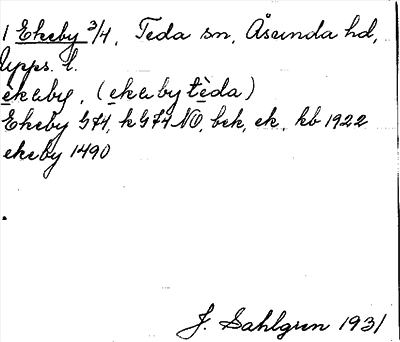 1 Ekeby 3/4, Teda sn, Åsunda hd,
Upps. l.
èkɯby, (ekɯby tèda)
Ekeby GK, kGK NO, bek, ek, kb 1922
ekeby 1490
J. Sahlgren 1931